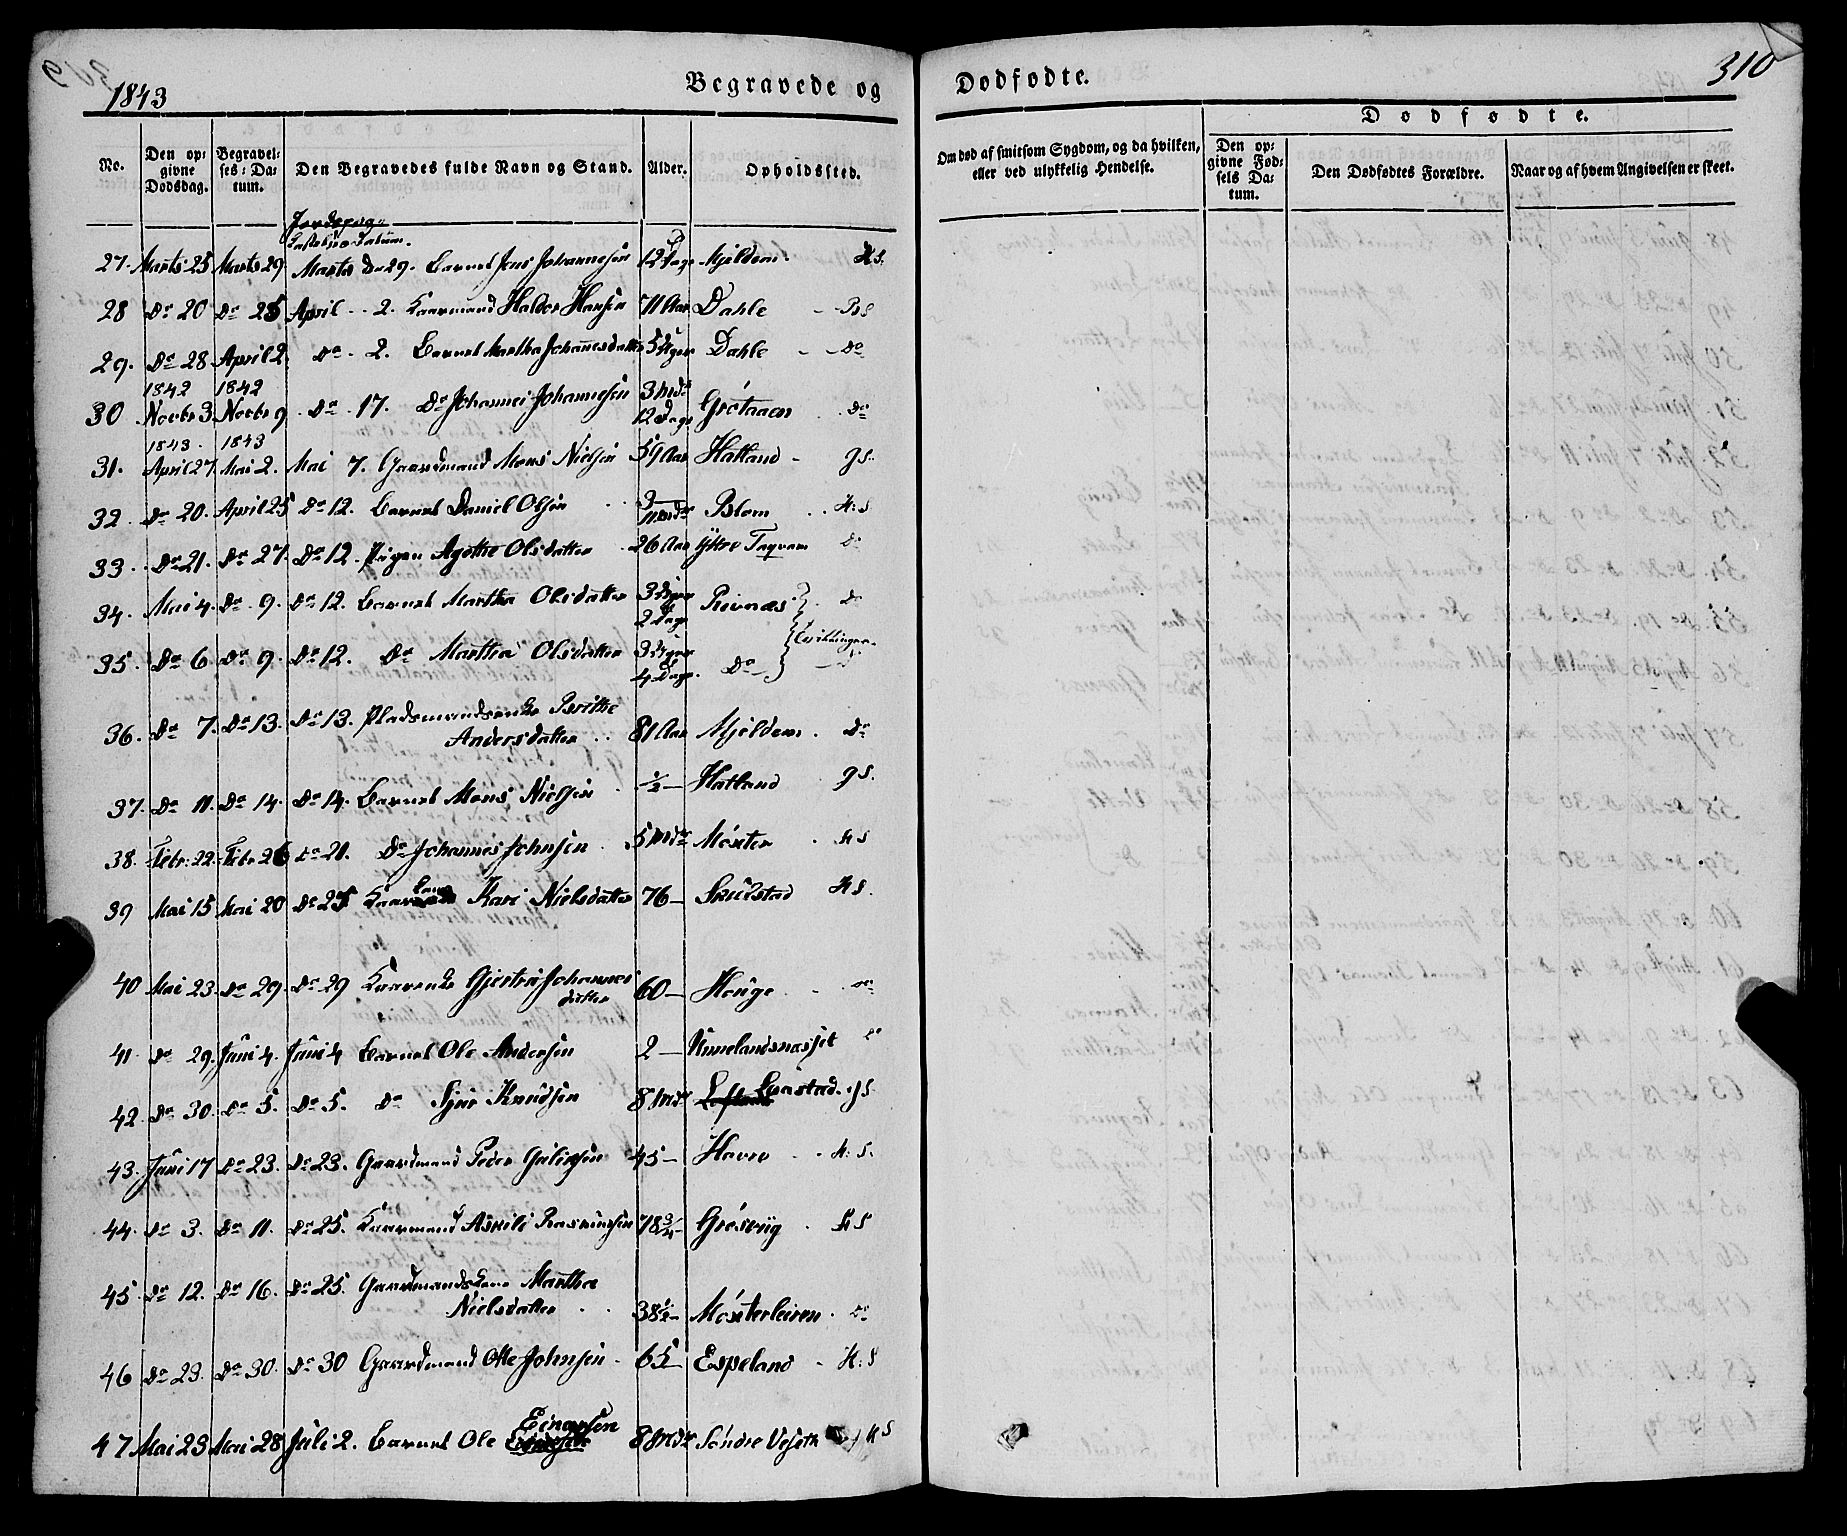 1843
Begravede og
Dødfødte.
310
No.
Den opgivne Dødsdag.
Begravelses-Datum.
Den Begravedes fulde Navn og Stand.
Alder.
Opholdssted.
Om død af smitsom Sygdom, og da hvilken, eller ved ulykkelig Hendelse.
Dødfødte.
Den opgivne Fødsels Datum.
Den Dødfødtes Forældre.
Naar og af hvem Angivelsen er skeet.
27. Marts 25 Marts 29 Marts d. 29. Barnet Jens Johannesen 12 Dage Mjeldem. H.S.
28 Do 20 Do 25 April 2. Kaarmand Haldor Hansen 71 Aar Dahle
29. Do 28 April 2. Do 2. Barnet Martha Johannesdatter 5 Uger Dahle Do
1842 1842
30 Novbr 3 Novbr 9 Do 17. Do Johannes Johannesen 3 Mdr 12 Dage Grotaaen Do
1843 1843
31. April 27 Mai 2. Mai 7. Gaardmand Mons Nielsen 59 Aar Hatland GS.
32. Do 20. April 25 Do 12. Barnet Daniel Olsen Blom H.S
33. Do 21. Do 27. Do 12. Pigen Agathe Olsdatter 26 Aar Yttre Taqvam Do
34. Mai 4. Do 9. Do 12. Barnet Martha Olsdatter 3 Uger 2 Dage Revnæs Do
Tvillinger
35. Do 6 Do 9. Do 12. Do Martha Olsdatter 3 Uger 4 Dage Do
36. Do 7. Do 13. Do 13. Pladsmandsenke Brithe
Andersdatter 81 Aar Mjeldem. Do
37. Do 11. Do 14. Do 14. Barnet Mons Nielsen ½ Hatland GS.
38. Febr. 22. Febr 26 Do 21. Do Johannes Johnsen 5 Mdr Möster HS
39 Mai 15 Mai 20 Do 25 Kaar Kari Nielsdatter 76 Skulstad HS.
40 Mai 23. Do 29. Do 29 Kaarenke Gjertru Johannes
datter 60 Houge Do
41. Do 29. Juni 4. Juni 4 Barnet Ole Andersen 2 Unnelandsnæsset Do
42. Do 30. Do 5. Do 5. Do Sjur Knudsen 8 Mdr GS
43. Juni 17 Do 23. Do 23. Gaardmand Peder 45 Haver H.S.
44. Do 3. Do 11. Do 25. Kaarmand Askild Rasmusen 78¾ Grösvig HS
45. Do 12. Do 16. Do 25. Gaardmandskone Martha
Nielsdatter 38½ Mösterleiren Do
46 Do 23. Do 30. Do 30 Gaardmand Olle Johnsen 65 Espeland H.S
47 Mai 23 Mai 28 Juli 2. Barnet Ole Einarsen 8 Mdr Söndre HS